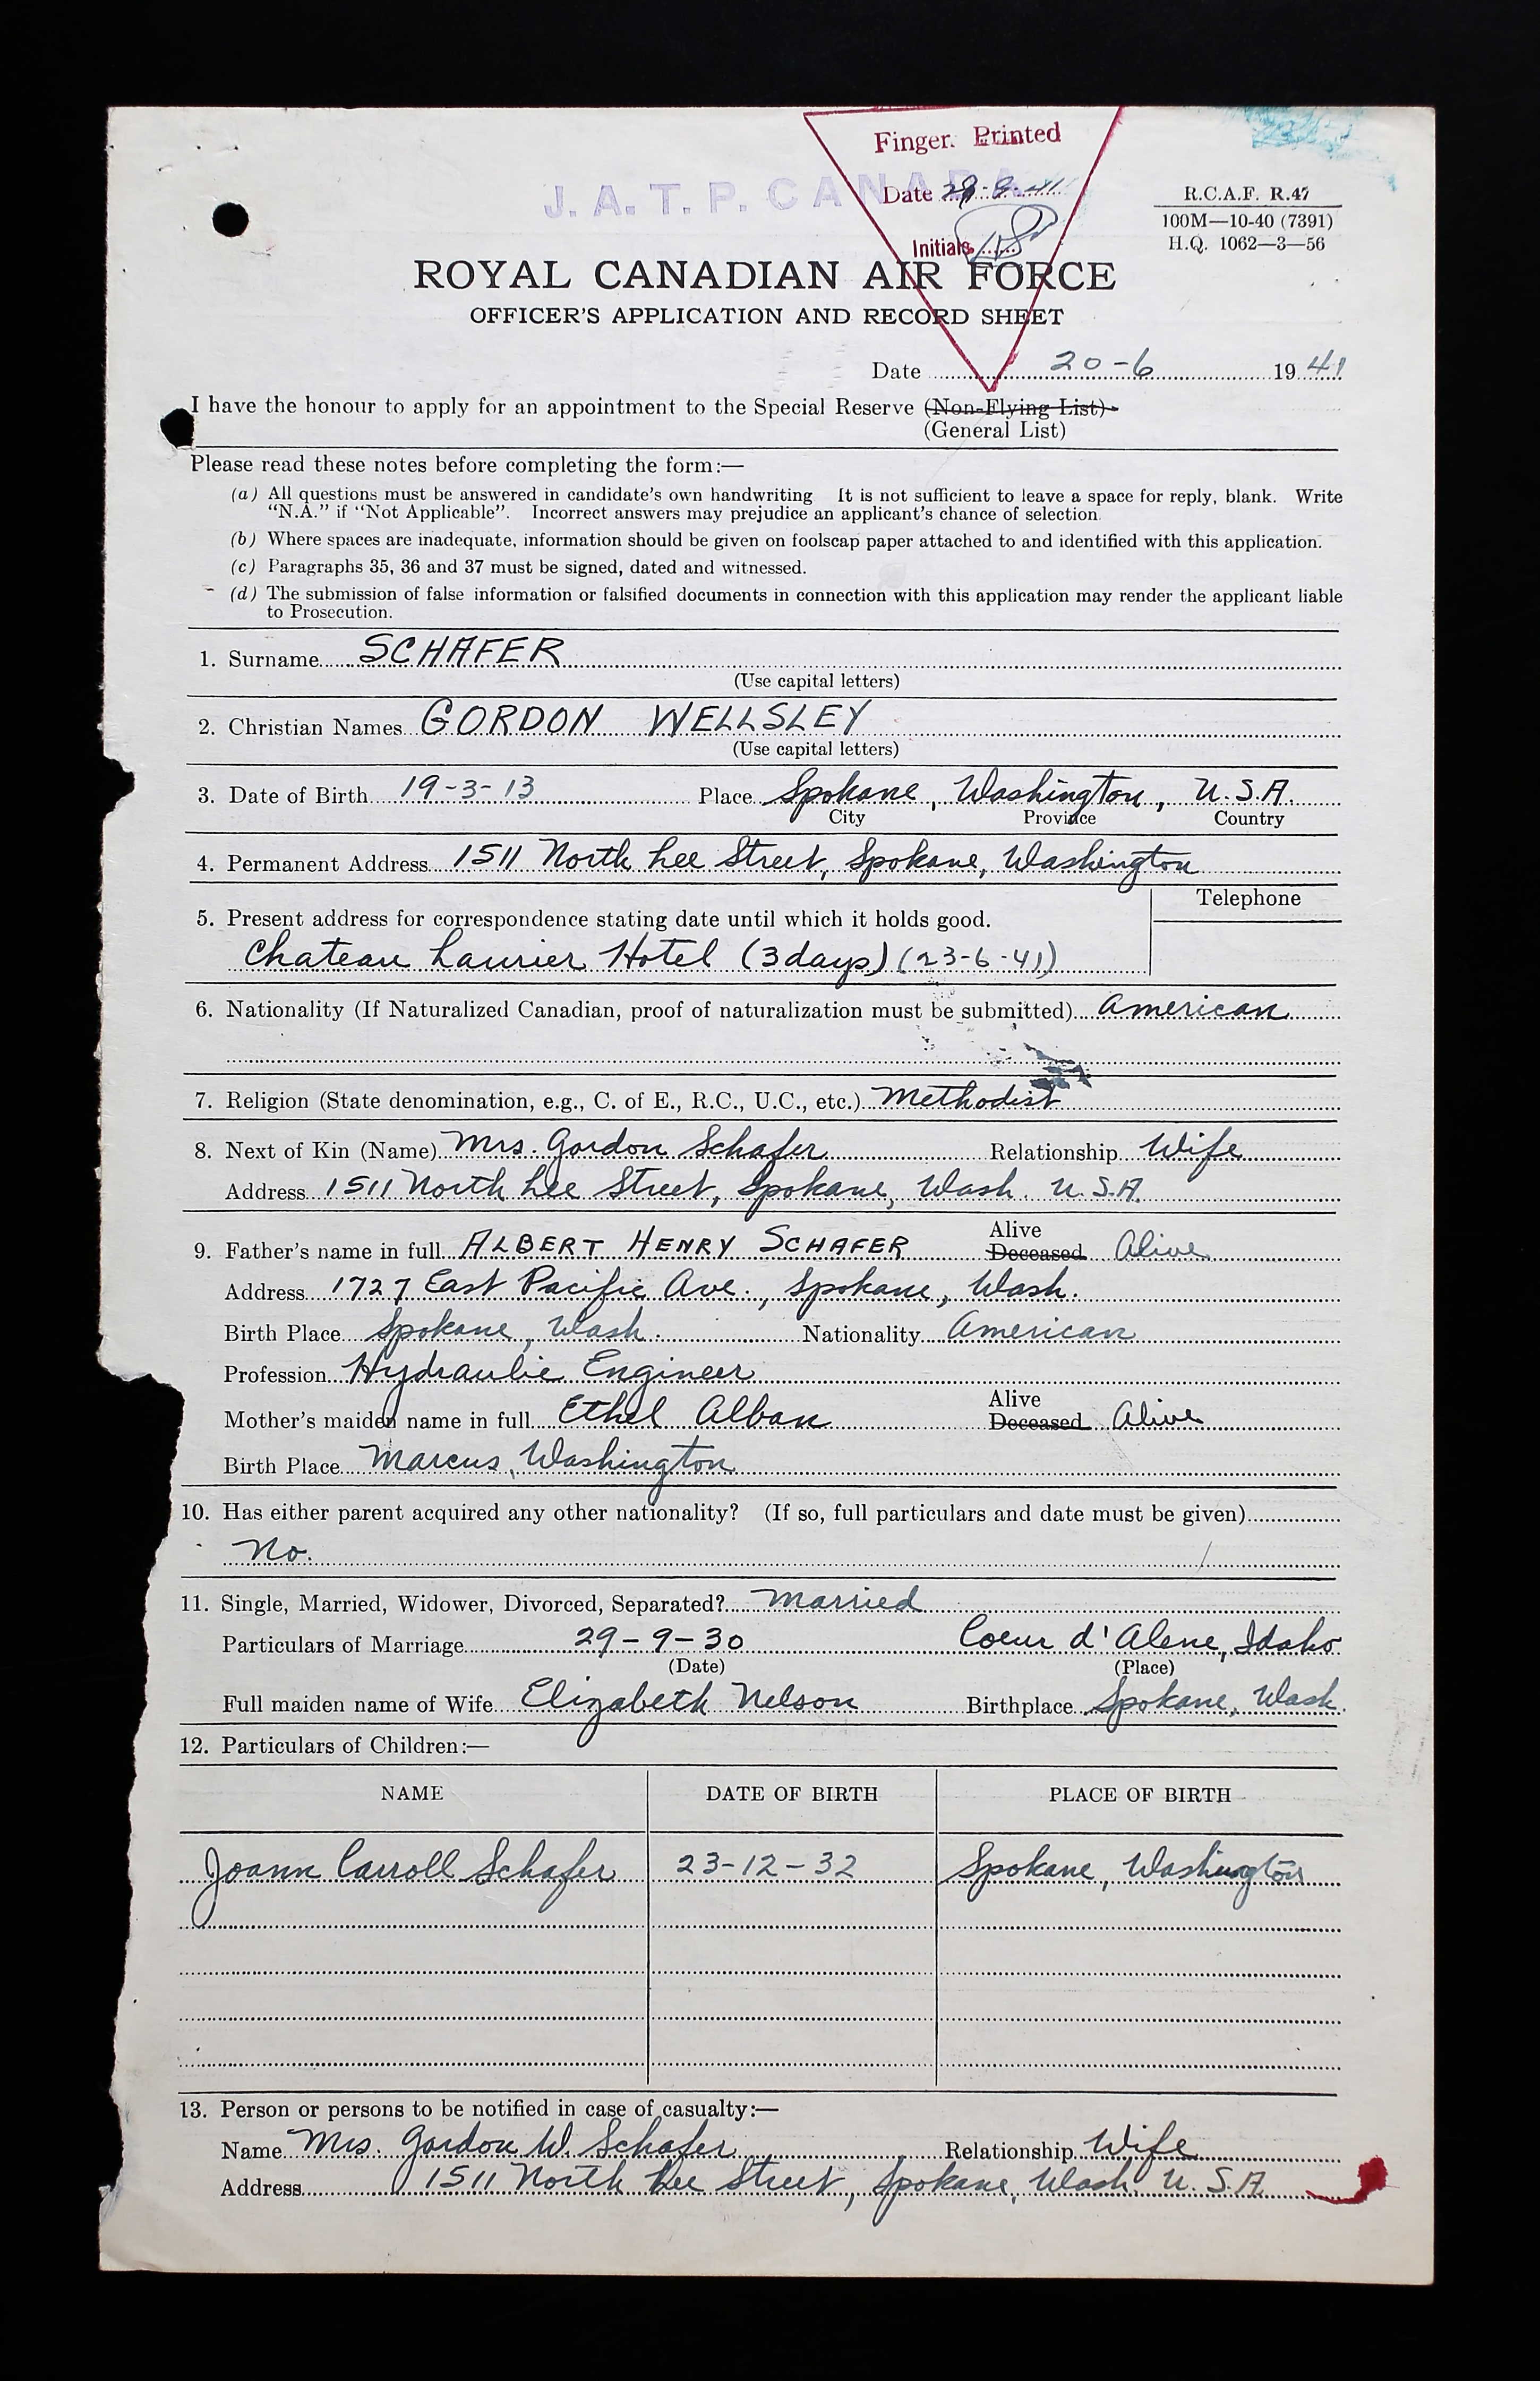 Finger. Printed
J. A. T. P. CANADA
Date 29-8-41
Initials
R.C.A.F. R.47
100M—10-40 (7391)
H.Q. 1062—3—56
ROYAL CANADIAN AIR FORCE
OFFICER'S APPLICATION AND RECORD SHEET
Date 20-6 1941
I have the honour to apply for an appointment to the Special Reserve (Non-Flying List)
(General List)
Please read these notes before completing the form:—
(a) All questions must be answered in candidate's own handwriting It is not sufficient to leave a space for reply, blank. Write
"N.A." if "Not Applicable". Incorrect answers may prejudice an applicant's chance of selection.
(b) Where spaces are inadequate, information should be given on foolscap paper attached to and identified with this application.
(c) Paragraphs 35, 36 and 37 must be signed, dated and witnessed.
(d) The submission of false information or falsified documents in connection with this application may render the applicant liable
to Prosecution.
1. Surname SCHAFER
(Use capital letters)
2. Christian Names GORDON WELLSLEY
(Use capital letters)
3. Date of Birth 19-3-13 Place Spokane, Washington, U.S.A.
City Province Country
4. Permanent Address 1511 North Lee Street, Spokane, Washington
Telephone
5. Present address for correspondence stating date until which it holds good.
Chateau Laurier Hotel (3 days) (23-6-41)
6. Nationality (If Naturalized Canadian, proof of naturalization must be submitted) American
7. Religion (State denomination, e.g., C. of E., R.C., U.C., etc.) Methodist
8. Next of Kin (Name) Mrs. Gordon Schafer Relationship Wife
Address 1511 North Lee Street, Spokane, Wash. U.S.A.
9. Father's name in full ALBERT HENRY SCHAFER Alive
Deceased Alive
Address 1727 East Pacific Ave., Spokane, Wash.
Birth Place Spokane, Wash. Nationality American
Profession Hydraulic Engineer
Mother's maiden name in full Ethel Alban Alive
Deceased Alive
Birth Place Marcus, Washington
10. Has either parent acquired any other nationality? (If so, full particulars and date must be given)
No.
11. Single, Married, Widower, Divorced, Separated? Married
Particulars of Marriage 29-9-30 Coeur d'Alene, Idaho
(Date) (Place)
Full maiden name of Wife Elizabeth Nelson Birthplace Spokane, Wash.
12. Particulars of Children:—
NAME DATE OF BIRTH PLACE OF BIRTH
Joann Carroll Schafer 23-12-32 Spokane, Washington
13. Person or persons to be notified in case of casualty:—
Name Mrs. Gordon W. Schafer Relationship Wife
Address 1511 North Lee Street, Spokane, Wash. U.S.A.